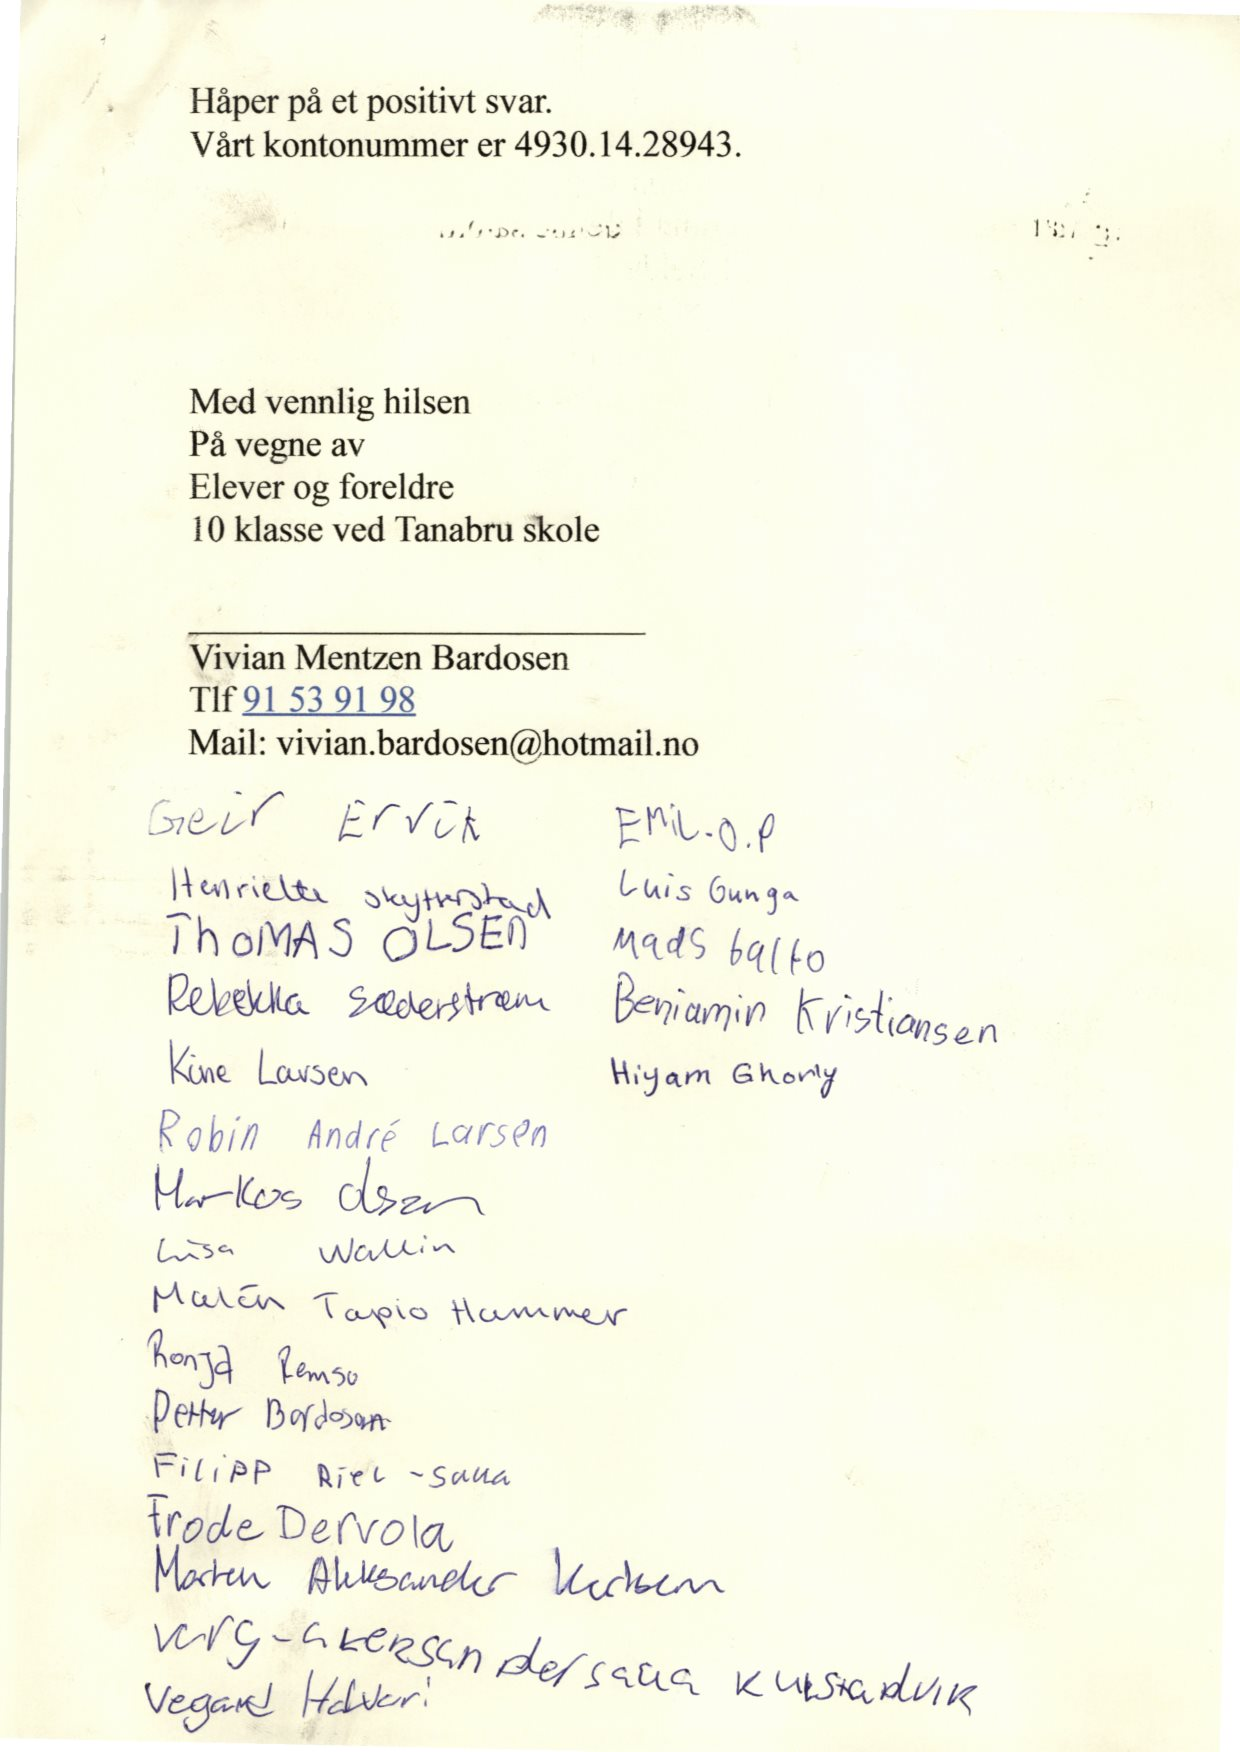 Håper på et positivt svar.
Vårt kontonummer er 4930.14.28943.
Med vennlig hilsen
På vegne av
Elever og foreldre
10 klasse ved Tanabru skole
Vivian Mentzen Bardosen
Tlf 91 53 91 98
Mail: vivian.bardosen@hotmail.no
Geir Ervik
Henriette Skytterstad
THOMAS OLSEN
Rebekka Sæderstrøm
Kine Larsen
Robin André Larsen
Markos Olsen
Lisa Wallin
Malén Tapio Hammer
Ronja Remso
Petter Bardosen
Filipp Riel-saua
Frode Dervola
Morten Aleksander
Vegard Halvari
EMIL.O.P
Luis Gunga
Mads balto
Benjamin Kristiansen
Hiyam